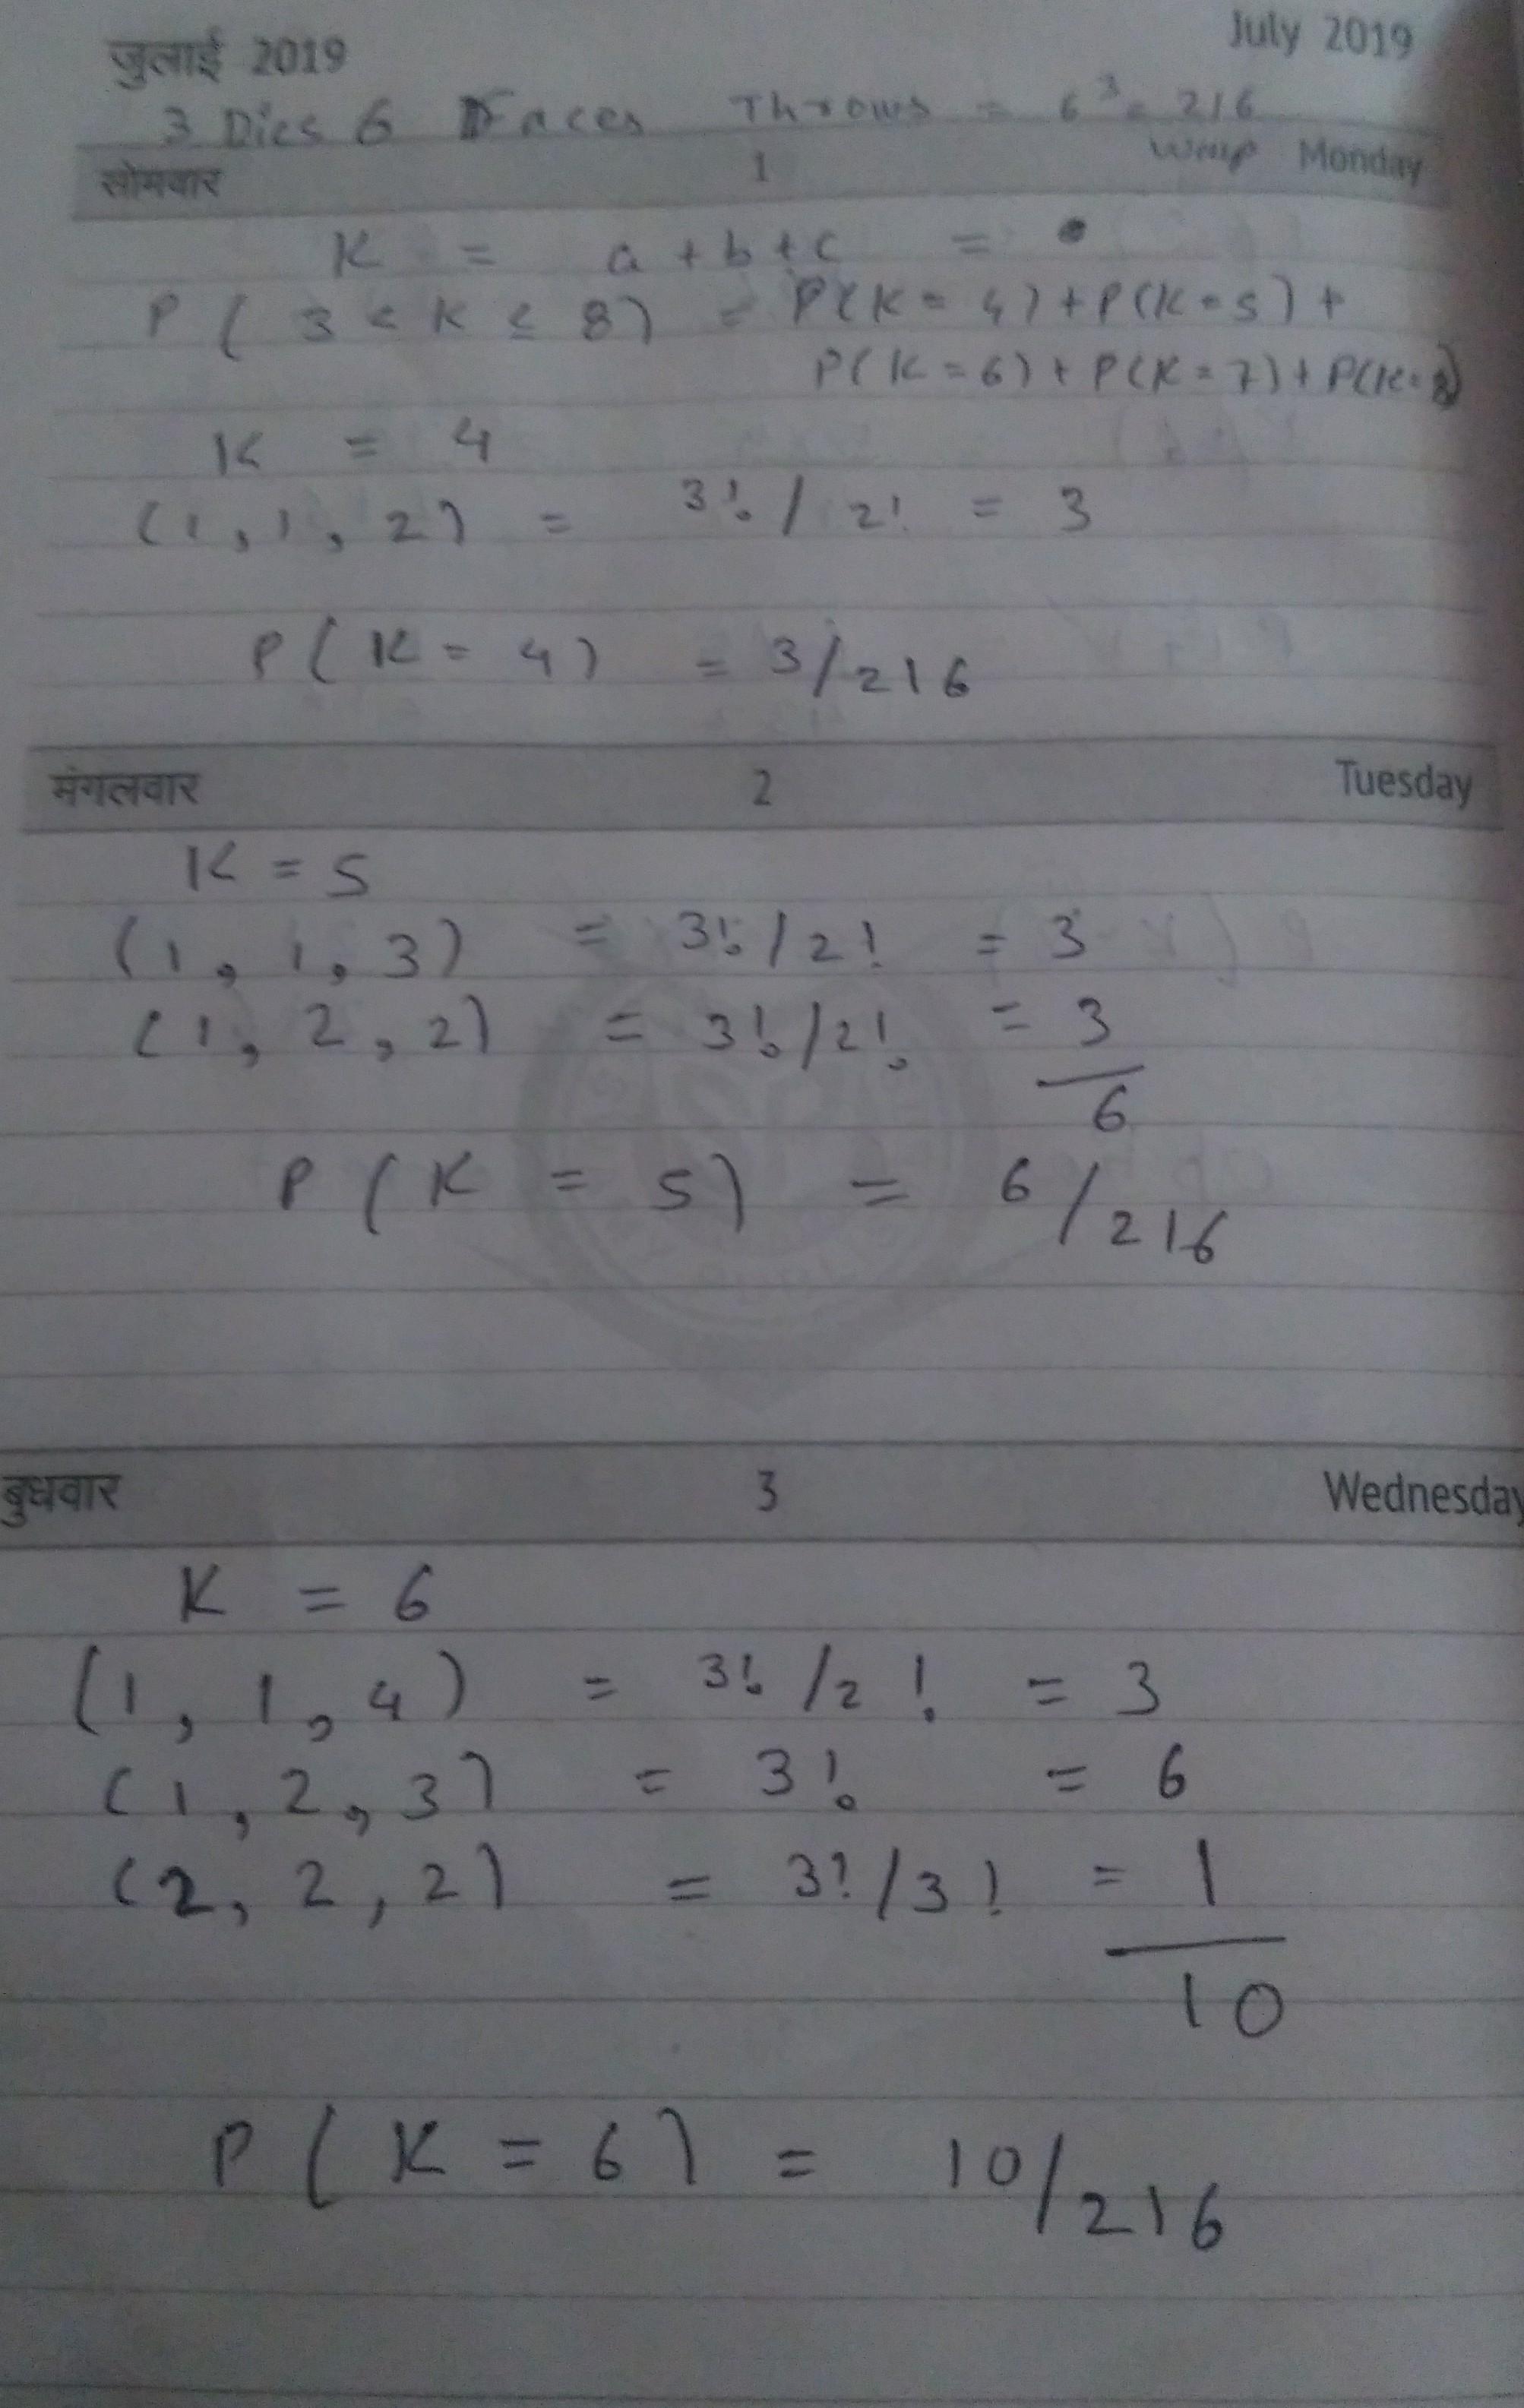 जुलाई 2019 July 2019
3 Dies 6 Faces Throws = 6³ = 216
सोमवार 1 Monday
K = a + b + c =
P ( 3 < K ≤ 8 ) = P(K = 4) + P(K = 5) +
P(K = 6) + P(K = 7) + P(K = 8)
K = 4
(1, 1, 2) = 3! / 2! = 3
P ( K = 4 ) = 3/216
मंगलवार 2 Tuesday
K = 5
(1, 1, 3) = 3! / 2! = 3
(1, 2, 2) = 3! / 2! = 3
6
P ( K = 5 ) = 6/216
बुधवार 3 Wednesday
K = 6
(1, 1, 4) = 3! / 2! = 3
(1, 2, 3) = 3! = 6
(2, 2, 2) = 3! / 3! = 1
10
P ( K = 6 ) = 10/216